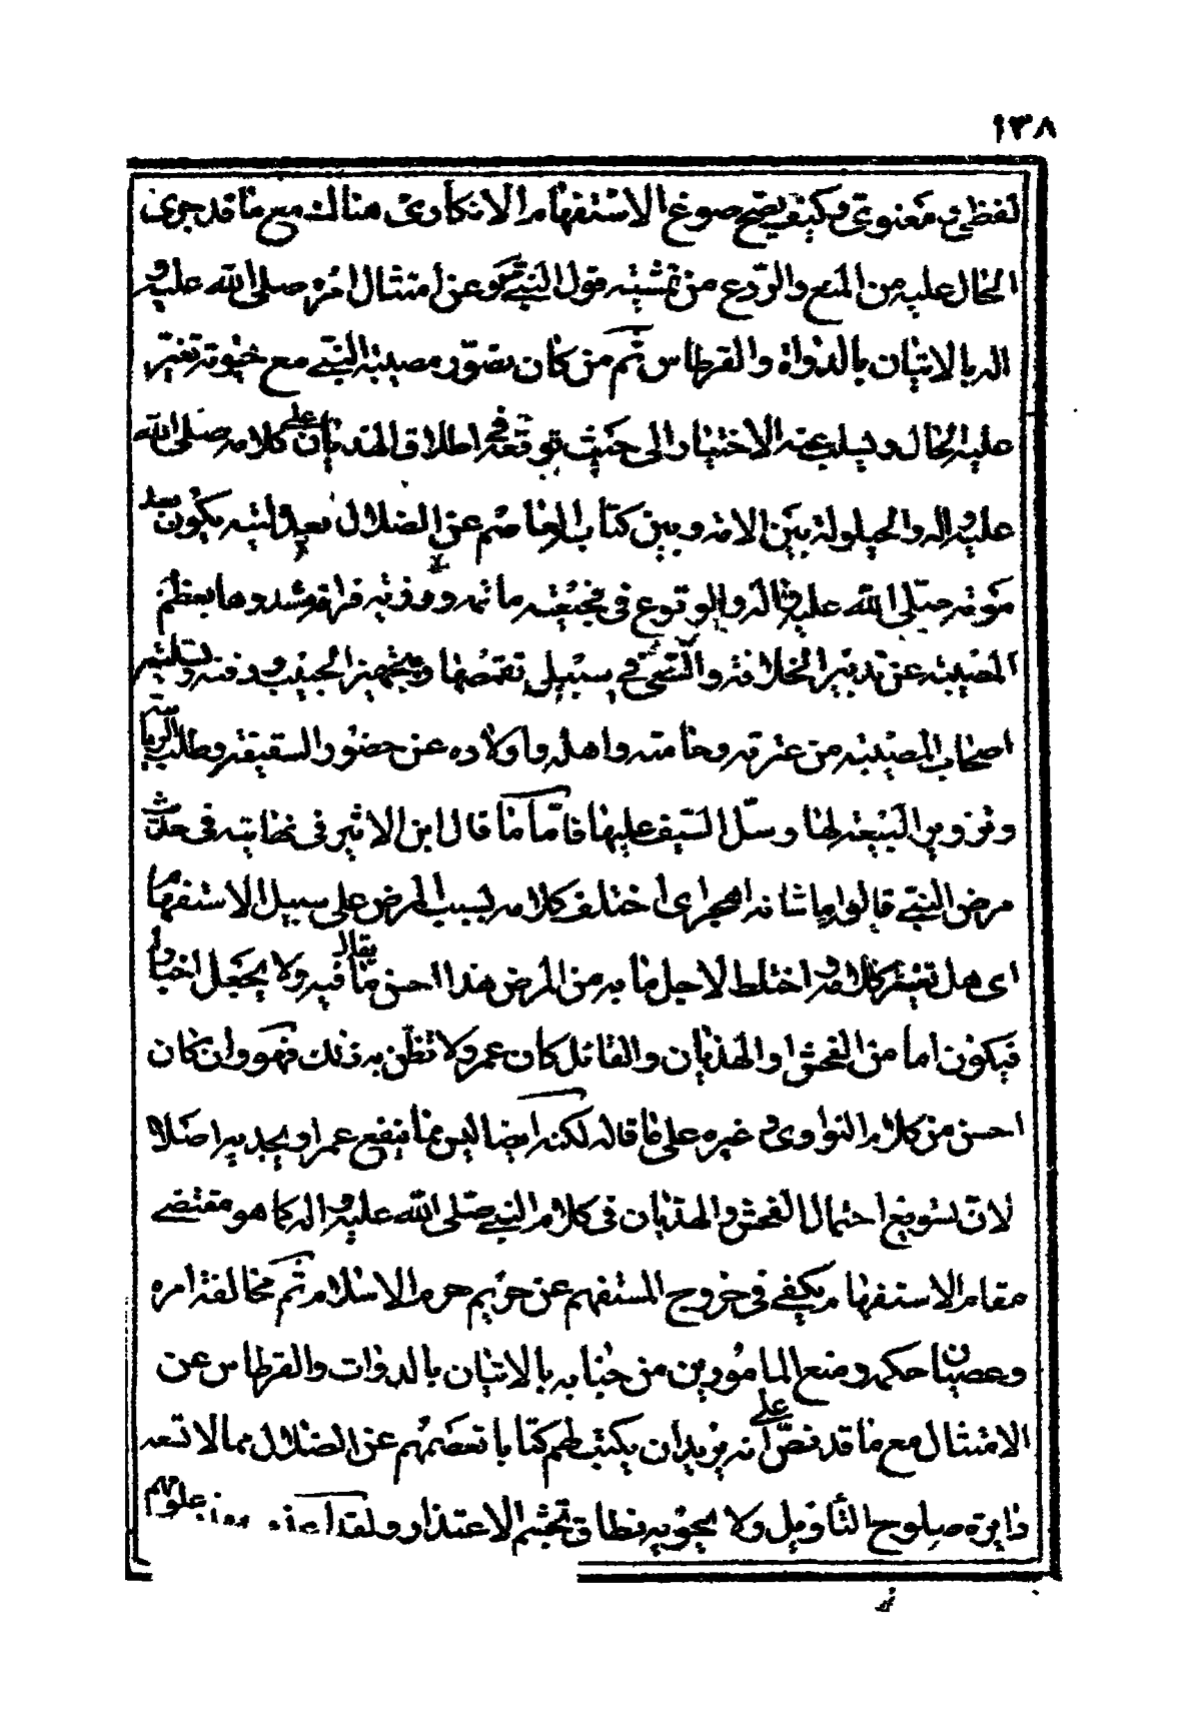 ١٣٨
لفظي ومعنوي وكيف يصح صوغ الاستفهام الانكاري هنالك مع ما قد جرى
الحال عليه من المنع والردع من تمشية قول النبي وعن امتثال امره صلى الله عليه و
اله بالاتيان بالدواة والقرطاس ثم من كان تصور مصيبة النبي مع حيوته تغير
عليه الحال ويسلب عنه الاختيار الى حيث توقعه في اطلاق الهذيان على كلامه صلى الله
عليه واله والحيلولة بين الامة وبين كتاب العاصم عن الضلال بعد كيف يكون بعد
موته صلى الله عليه واله والوقوع في فجيعته مانعه ورزيته فراقه وشدو ها بعظم
المصيبة عن تدبير الخلافة والسعي في سبيل تقمصها وتجهيز الحبيب ودفنه وتسلية
اصحاب المصيبة من عترته وحامته واهله واولاده عن حضور السقيفة وطلب الرياسة
وتزوير البيعة لها وسل السيف عليها فاما ما قال ابن الاثير في نهايته في حديث
مرض النبي قالوا ما شانه اهجر اى اختلف كلامه بسبب المرض على سبيل الاستفهام
اى هل تغير كلامه واختلط لاجل ما به من المرض هذا احسن ما يقال فيه ولا يجعل اخبارا
فيكون اما من الفحش او الهذيان والقائل كان عمر ولا نظن به ذلك فهو وان كان
احسن من كلام النواوي وغيره على ما قاله لكنه ايضا ليس مما ينفع عمر او يجديه اصلا
لان تسويغ احتمال الفحش والهذيان في كلام النبي صلى الله عليه واله كما هو مقتضى
مقام الاستفهام يكفي في خروج المستفهم عن حريم حرم الاسلام ثم مخالفة امره
وعصيان حكمه ومنع المامورين من جنابه بالاتيان بالدوات والقرطاس عن
الامتثال مع ما قد نص على انه يريد ان يكتب لهم كتابا تعصمهم عن الضلال مما لا تسعه
دايرة صلوح التاويل ولا يحويه نطاق تجشم الاعتذار ولقد